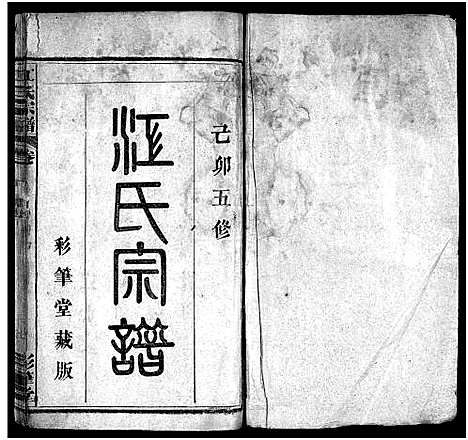 己卯五修
江氏宗譜
彩筆堂藏版